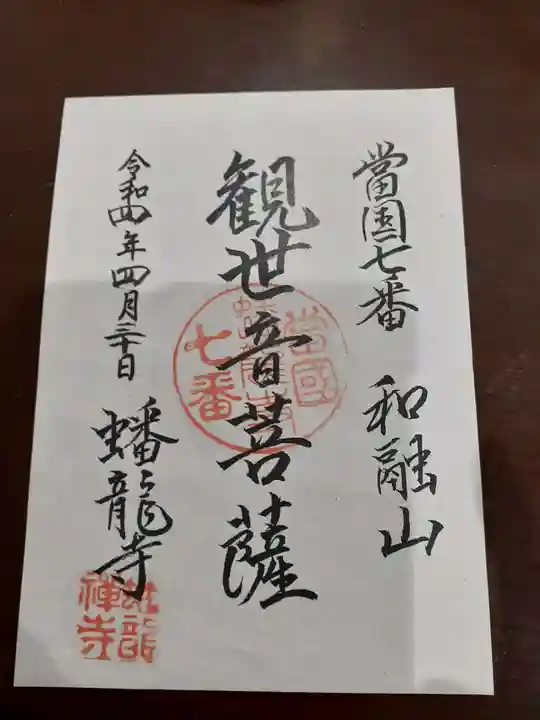 當国七番 和融山
観世音菩薩
令和四年四月三十日 蟠龍寺
當國
蟠龍寺
七番
蟠龍
禅寺